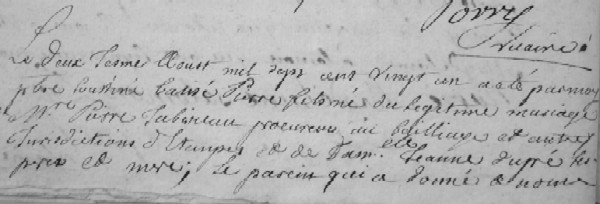 Porry
Vicaire
Le deux Jesme Aoust mil sept cent vingt un a eté par moy
pbre soussiné batisé Pierre fils né du legitime mariage
Mre Pierre procureur au bailliage et autres
Jurisdictions d'Etampes et de Damlle Jeanne ses
pere et mere ; Le parein qui a donné le nom